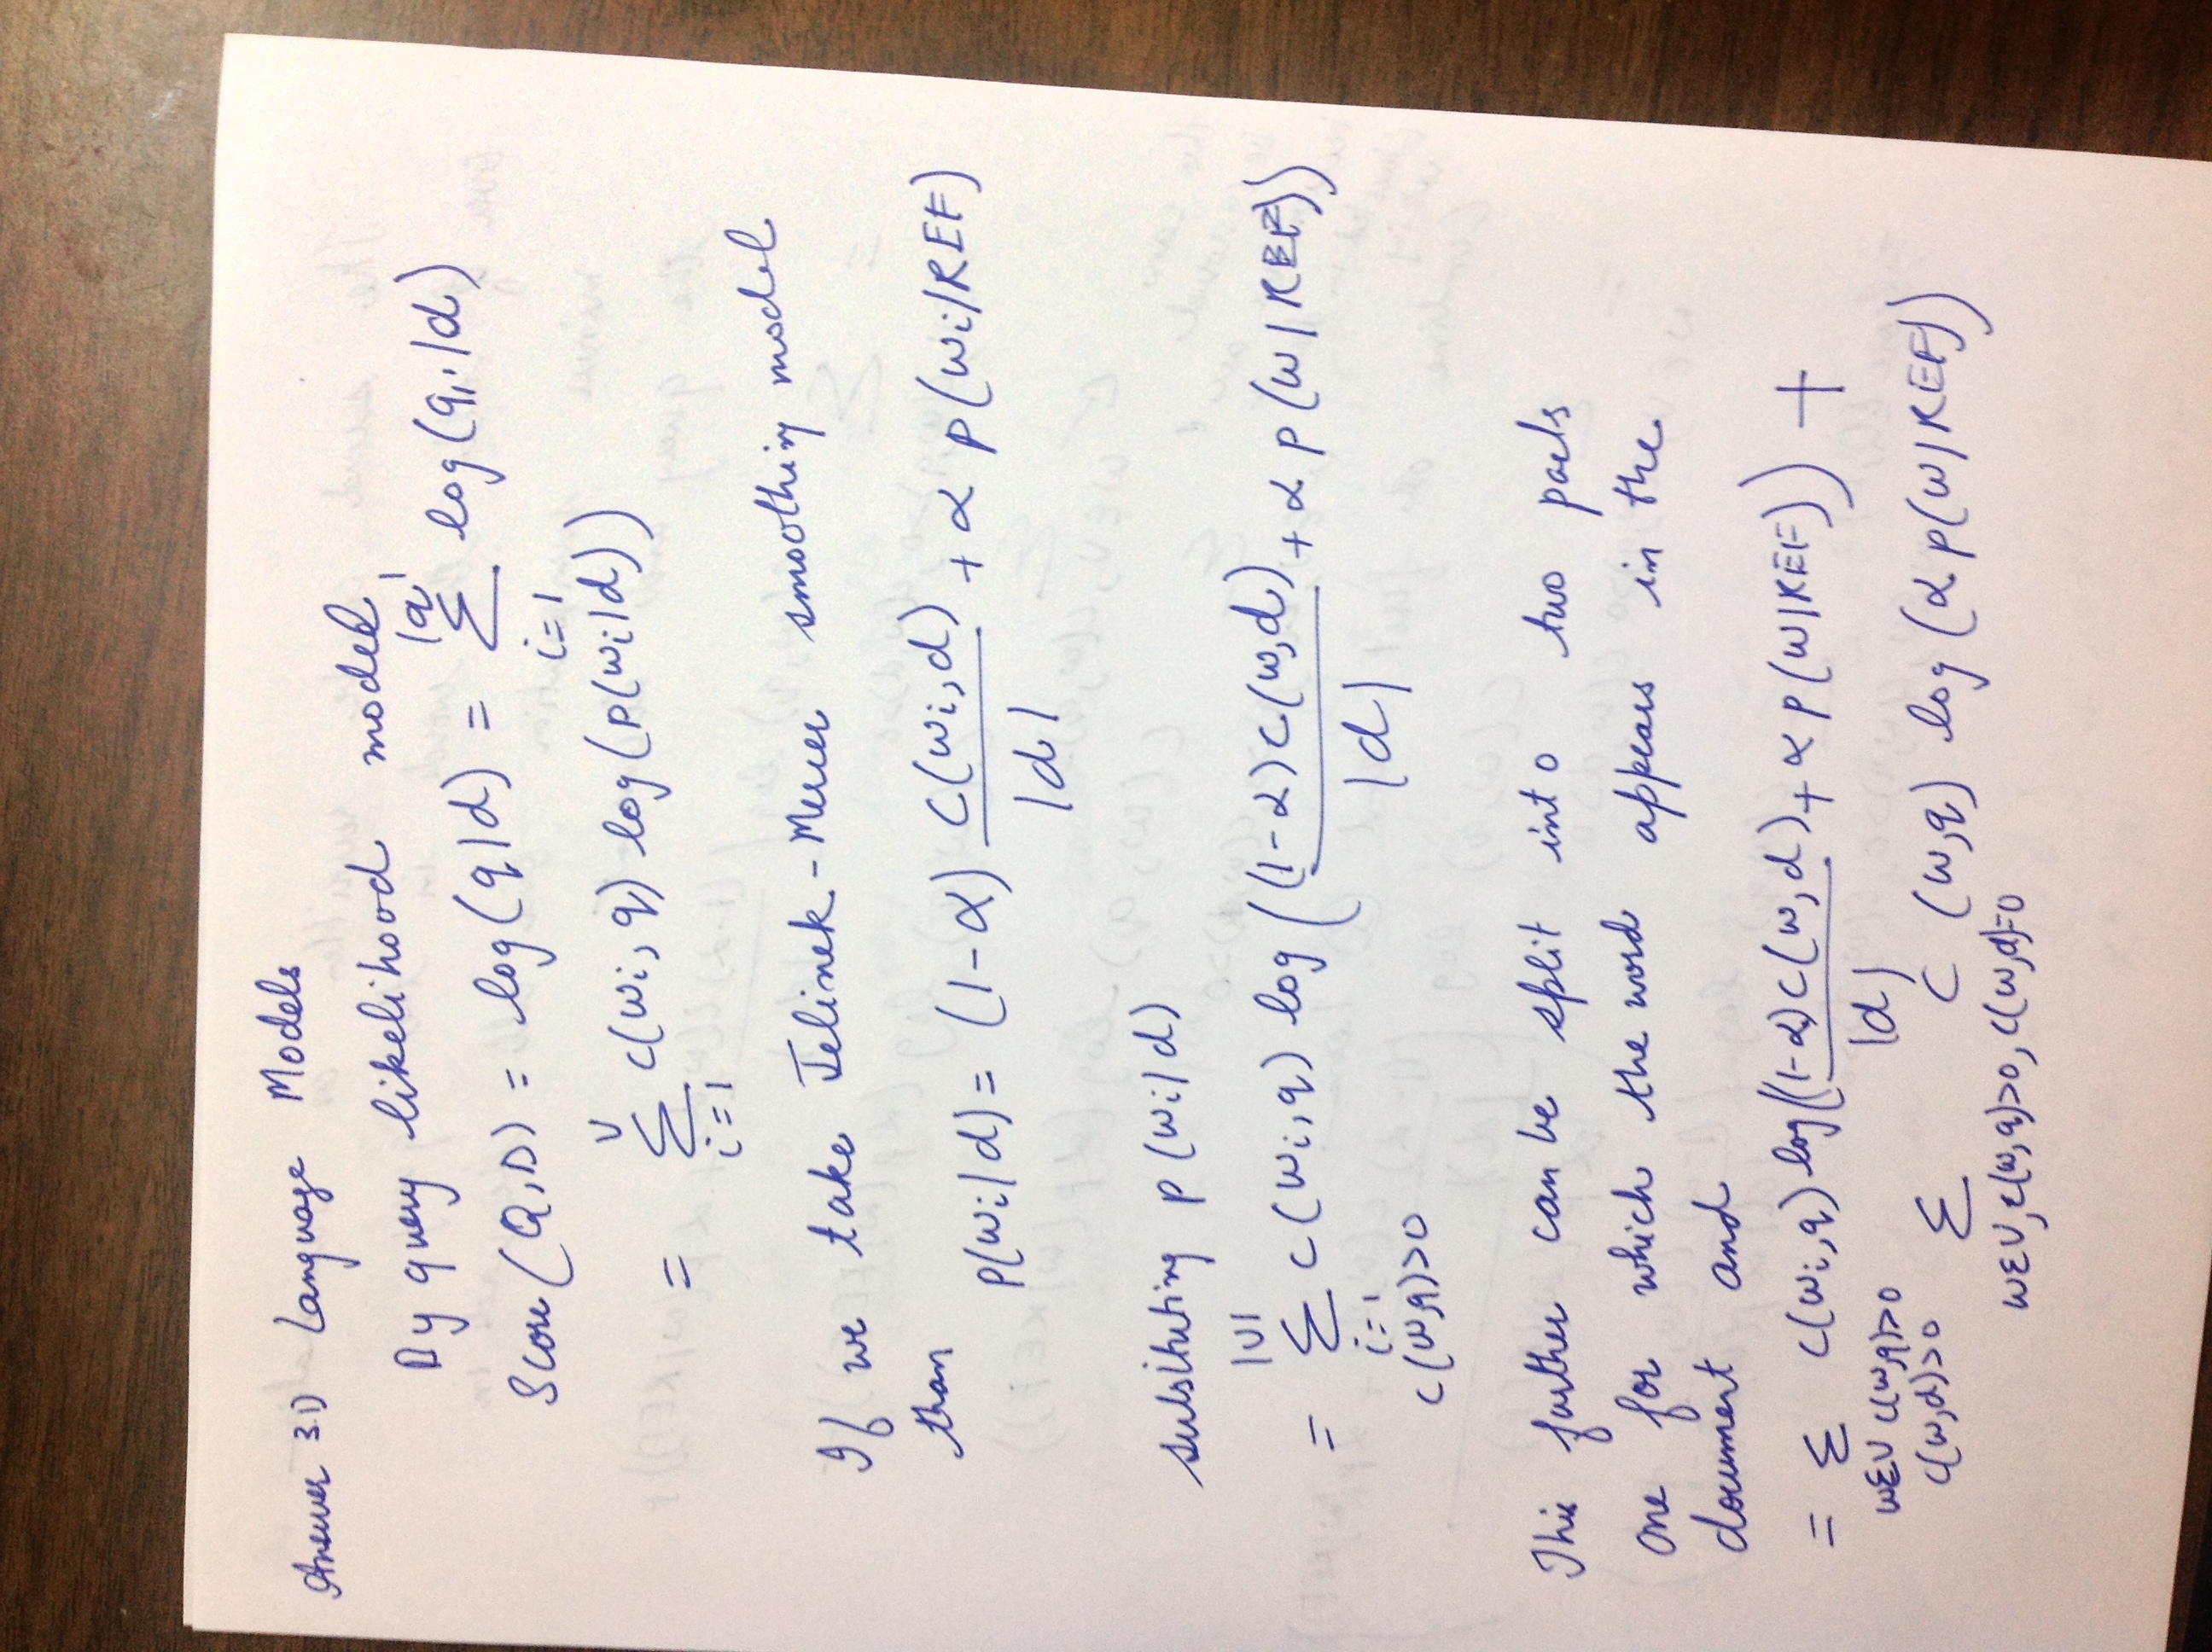 Answer 3.1) Language Models
By query likelihood model,
Score(Q,D) = log(q|d) = |q| Σ i=1 log(qi|d)
= V Σ i=1 c(wi, q) log(p(wi|d))
If we take Jelinek-Mercer smoothing model
than
p(wi|d) = (1-α) c(wi,d) / |d| + α p(wi|REF)
subsituting p(wi|d)
= |V| Σ i=1 c(w,q)>0 c(wi,q) log((1-α)c(w,d) / |d| + α p(w|REF))
This further can be split into two parts
one for which the word appears in the
document and
= Σ w∈V c(w,q)>0 c(w,d)>0 c(wi,q) log((1-α)c(w,d) / |d| + α p(w|REF)) +
Σ w∈V, c(w,q)>0, c(w,d)=0 c(w,q) log(α p(w|REF))